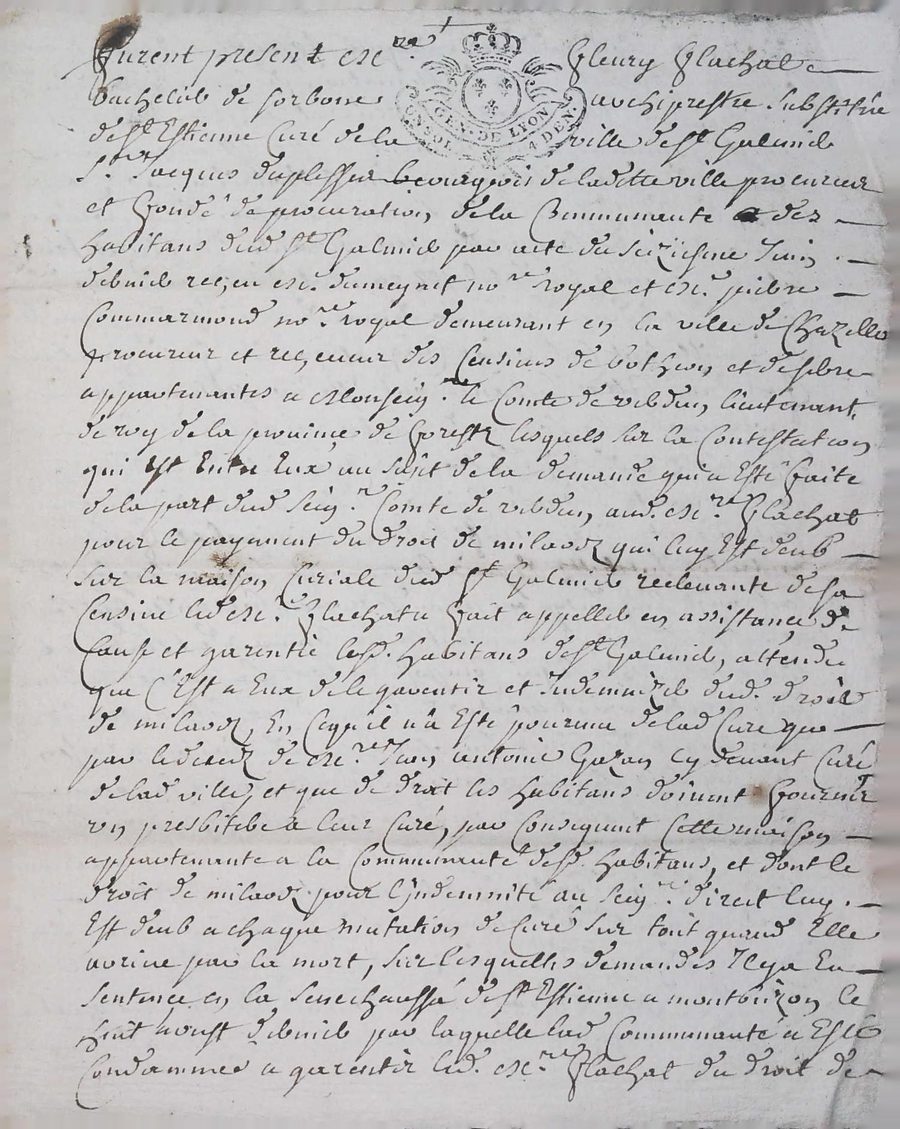 furent present Me Fleury Flachat
bachelier de sorbonne archiprestre substitué
de St Estienne Curé de la ville de St Galmier
Sr Jacques duplessis bourgeois de ladette ville procureur
et fondé de procuration de la Communauté des
habitans dud St Galmier par acte du seiziesme Juin
dernier reçeu Me dumeynet nore royal et Me pierre
Commarmond nore royal demeurant en la ville de Chazelle
procureur et reçeveur des Censives de botheon et de
appartenantes a Monseigr le Comte de verdun lieutenant
de roy de la province de forestz lesquels sur la Contestation
qui est Entre Eux au sujet de la demande qui a Esté faite
de la part dud seigr Comte de verdun aud. Me Flachat
pour le payement du droit de milaodz qui luy Est deub
sur la maison Curiale dud St Galmier relevante de sa
Censive led Me Flachat a fait appeller en assistance de
Cause et garentie lesd. habitans de St Galmier, attendu
que C'Est a Eux de le garentir et Indemnizer dud. droit
de milaodz, En Ce quil n'a Esté pourveu de lad Cure que
par le decedz de Me Jean antoine Gazan cy devant Curé
de lad ville, et que de droit les habitans doivent fournir
un presbitere a leur Curé, par Consequent Cette maison
appartenante a la Communauté desd. habitans, et dont le
droit de milaodz pour l'Indemnité au seigr direct luy
Est deub a chaque mutation de Curé sur tout quand Elle
arrive par la mort, sur lesquelles demandes Il y a Eu
sentence en la seneschaussé de St Estienne a montbrizon le
huit aoust dernier par laquelle lad Communauté a Esté
Condamnée a garentir led. Me Flachat du droit de
GEN. DE LYON
4 DEN.